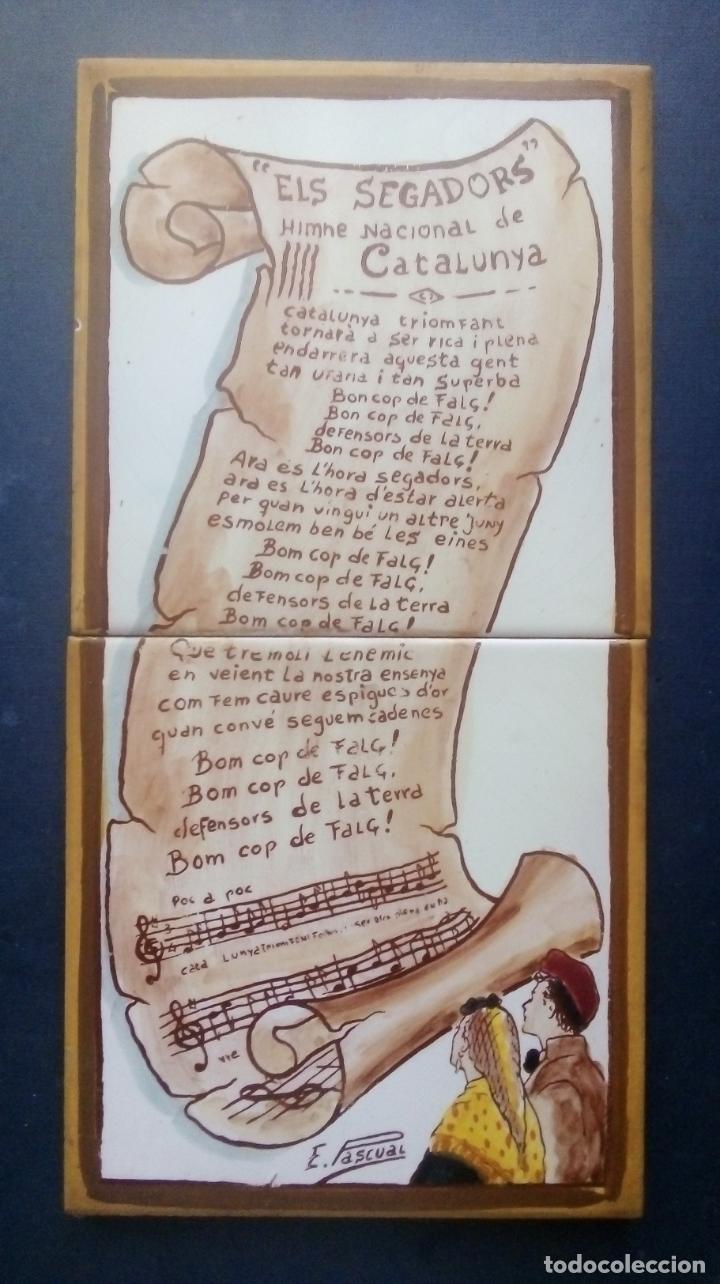 "ELS SEGADORS"
Himne Nacional de
Catalunya
Catalunya triomfant
tornarà a ser rica i plena
endarrera aquesta gent
tan ufana i tan superba
Bon cop de falç!
Bon cop de falç,
defensors de la terra
Bon cop de falç!
Ara és l'hora segadors,
ara es l'hora d'estar alerta
per quan vingui un altre juny
esmolem ben bé les eines
Bom cop de falç!
Bom cop de falç,
defensors de la terra
Bom cop de falç!
Que tremoli l'enemic
en veient la nostra ensenya
com fem caure espigues d'or
quan convé seguem cadenes
Bom cop de falç!
Bom cop de falç,
defensors de la terra
Bom cop de falç!
Poc a poc
cata lunya triomfant
E. Pascual
todocoleccion